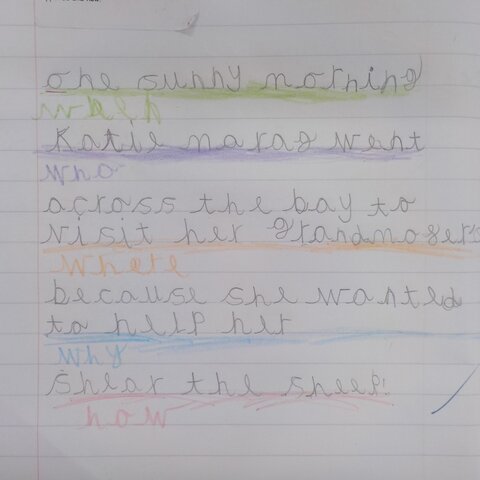 one sunny morning
when
Katie marag went
who
across the bay to
visit her grandmoger's
where
because she wanted
to help her
why
Shear the sheep!
how